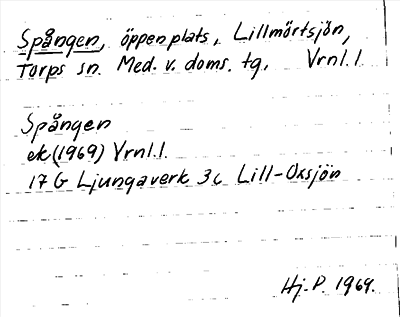 Spången, öppen plats, Lillmörtsjön,
Torps sn. Med. v. doms. tg. Vrnl. l
Spången
ek (1969) Vrnl. l.
17 G Ljungaverk 3c Lill-Oxsjön
Hj. P. 1969.